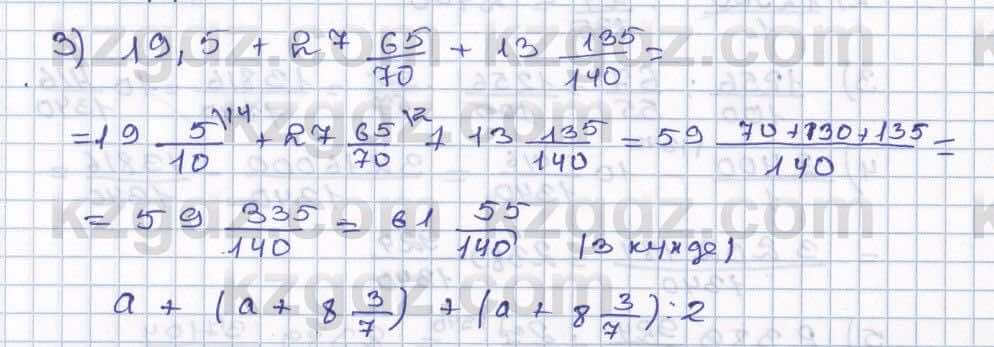 3) 19,5 + 27 65/70 + 13 135/140 =
= 19 5/10 \14 + 27 65/70 \2 + 13 135/140 = 59 (70+130+135)/140 =
= 59 335/140 = 61 55/140 (3 күнде)
a + (a + 8 3/7) + (a + 8 3/7) : 2